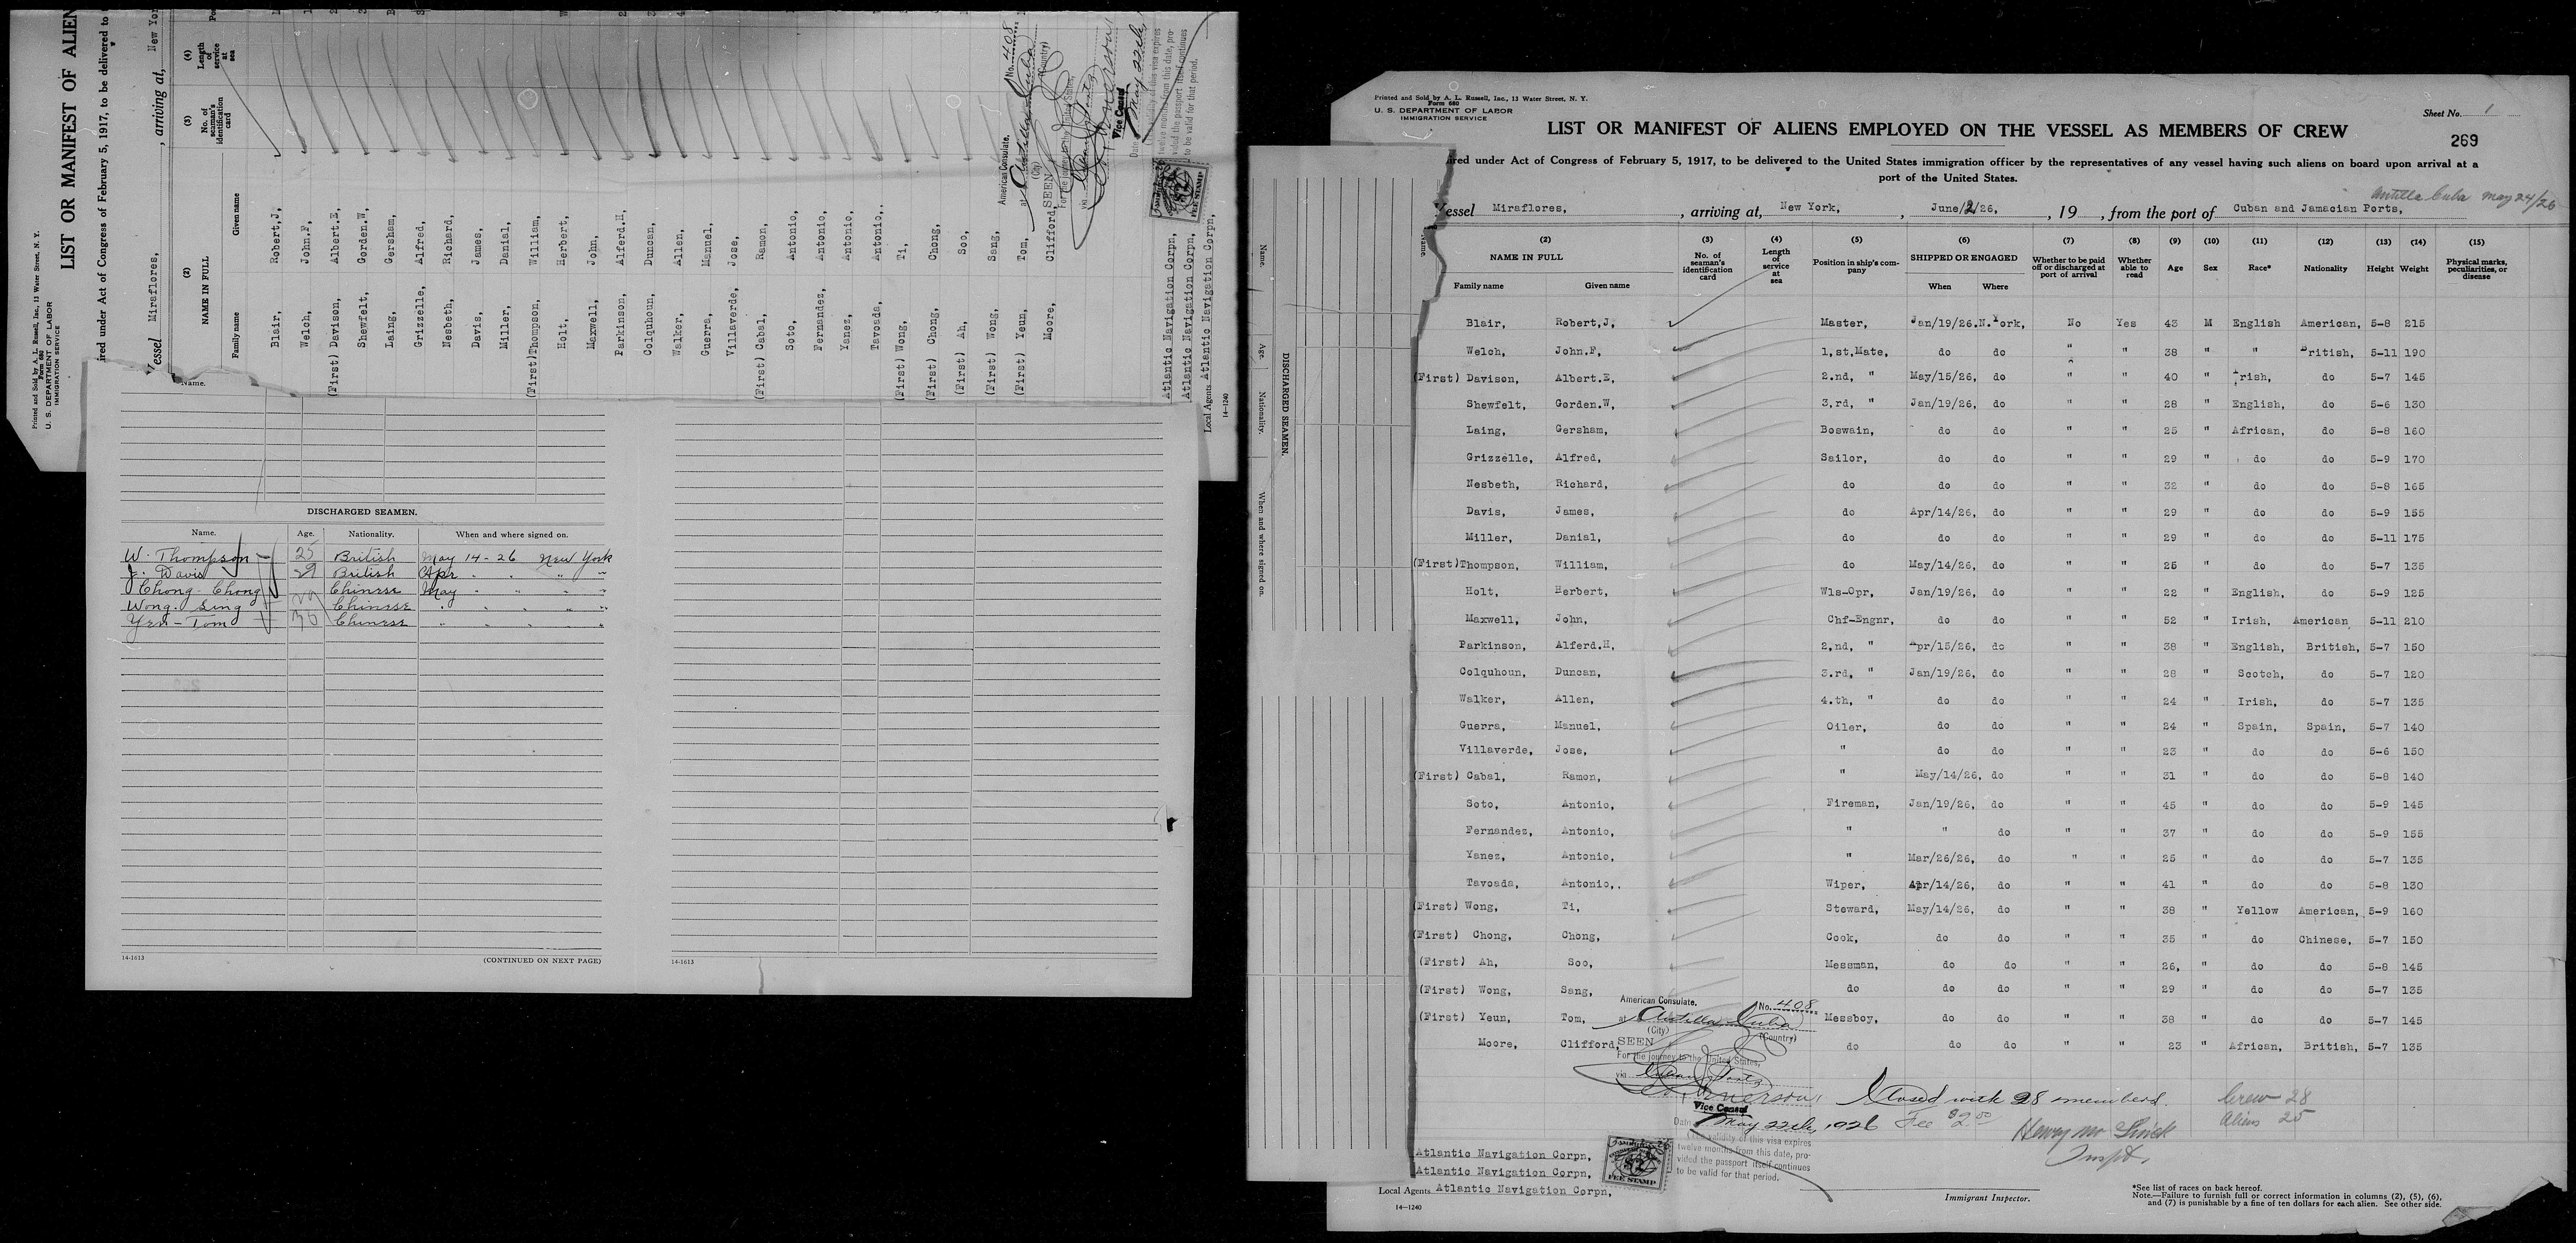 Printed and Sold by A. L. Russell, Inc., 13 Water Street, N. Y.
Form 680
U. S. DEPARTMENT OF LABOR
IMMIGRATION SERVICE
LIST OR MANIFEST OF ALIEN
ired under Act of Congress of February 5, 1917, to be delivered to
Vessel Miraflores, , arriving at, New Yor
(2) (3) (4)
NAME IN FULL No. of seaman's identification card Length of service at sea
Family name Given name
Blair, Robert,J,
Welch, John.F,
(First) Davison, Albert.E,
Shewfelt, Gorden.W,
Laing, Gersham,
Grizzelle, Alfred,
Nesbeth, Richard,
Davis, James,
Miller, Danial,
(First)Thompson, William,
Holt, Herbert,
Maxwell, John,
Parkinson, Alferd.H,
Colquhoun, Duncan,
Walker, Allen,
Guerra, Manuel,
Villaverde, Jose,
(First) Cabal, Ramon,
Soto, Antonio,
Fernandez, Antonio,
Yanez, Antonio,
Tavoada, Antonio,.
(First) Wong, Ti,
(First) Chong, Chong,
(First) Ah, Soo,
(First) Wong, Sang,
(First) Yeun, Tom,
Moore, Clifford,
American Consulate.
at Antilla Cuba No. 408
(City) (Country)
SEEN
For the journey to the United States,
via
Vice Consul
Date May 22th,
(The validity of this visa expires
twelve months from this date, pro-
vided the passport itself continues
to be valid for that period.
FEE STAMP
Atlantic Navigation Corpn,
Atlantic Navigation Corpn,
Local Agents Atlantic Navigation Corpn,
14-1240
Name.
DISCHARGED SEAMEN.
Name. Age. Nationality. When and where signed on.
W. Thompson 25 British May 14-26 New York
J. Davis 29 British Apr " " " "
Chong Chong Chinese May " " " "
Wong. Sing Chinese " " " "
Yen-Tom Chinese " " " "
14-1613 (CONTINUED ON NEXT PAGE)
14-1613
Printed and Sold by A. L. Russell, Inc., 13 Water Street, N. Y.
Form 680
U. S. DEPARTMENT OF LABOR
IMMIGRATION SERVICE
Sheet No. 1
LIST OR MANIFEST OF ALIENS EMPLOYED ON THE VESSEL AS MEMBERS OF CREW
269
ired under Act of Congress of February 5, 1917, to be delivered to the United States immigration officer by the representatives of any vessel having such aliens on board upon arrival at a
port of the United States.
Antilla Cuba May 24/26
Vessel Miraflores, , arriving at, New York, , June/2/26, , 19 , from the port of Cuban and Jamacian Ports,
Name. Age. Nationality. When and where signed on.
DISCHARGED SEAMEN.
Name.
(2) (3) (4) (5) (6) (7) (8) (9) (10) (11) (12) (13) (14) (15)
NAME IN FULL No. of seaman's identification card Length of service at sea Position in ship's company SHIPPED OR ENGAGED Whether to be paid off or discharged at port of arrival Whether able to read Age Sex Race* Nationality Height Weight Physical marks, peculiarities, or disease
Family name Given name When Where
Blair, Robert,J, Master, Jan/19/26. N.York, No Yes 43 M English American, 5-8 215
Welch, John.F, 1,st,Mate, do do " " 38 " " British, 5-11 190
(First) Davison, Albert.E, 2.nd, " May/15/26, do " " 40 " Irish, do 5-7 145
Shewfelt, Gorden.W, 3,rd, " Jan/19/26, do " " 28 " English, do 5-6 130
Laing, Gersham, Boswain, do do " " 25 " African, do 5-8 160
Grizzelle, Alfred, Sailor, do do " " 29 " do do 5-9 170
Nesbeth, Richard, do do do " " 32 " do do 5-8 165
Davis, James, do Apr/14/26, do " " 29 " do do 5-9 155
Miller, Danial, do do do " " 29 " do do 5-11 175
(First)Thompson, William, do May/14/26, do " " 25 " do do 5-7 135
Holt, Herbert, Wls-Opr, Jan/19/26, do " " 22 " English, do 5-9 125
Maxwell, John, Chf-Engnr, do do " " 52 " Irish, American 5-11 210
Parkinson, Alferd.H, 2,nd, " Apr/15/26, do " " 38 " English, British, 5-7 150
Colquhoun, Duncan, 3.rd, " Jan/19/26, do " " 28 " Scotch, do 5-7 120
Walker, Allen, 4.th, " do do " " 24 " Irish, do 5-7 135
Guerra, Manuel, Oiler, do do " " 24 " Spain, Spain, 5-7 140
Villaverde, Jose, " do do " " 23 " do do 5-6 150
(First) Cabal, Ramon, " May/14/26, do " " 31 " do do 5-8 140
Soto, Antonio, Fireman, Jan/19/26, do " " 45 " do do 5-9 145
Fernandez, Antonio, " " do " " 37 " do do 5-9 155
Yanez, Antonio, " Mar/26/26, do " " 25 " do do 5-7 135
Tavoada, Antonio,. Wiper, Apr/14/26, do " " 41 " do do 5-8 130
(First) Wong, Ti, Steward, May/14/26, do " " 38 " Yellow American, 5-9 160
(First) Chong, Chong, Cook, do do " " 35 " do Chinese, 5-7 150
(First) Ah, Soo, Messman, do do " " 26, " do do 5-8 145
(First) Wong, Sang, do do do " " 29 " do do 5-7 135
(First) Yeun, Tom, Messboy, do do " " 38 " do do 5-7 145
Moore, Clifford, do do do " " 23 " African, British, 5-7 135
American Consulate. No. 408
at Antilla Cuba
(City) (Country)
SEEN
For the journey to the United States,
via
Vice Consul
Closed with 28 members.
Crew 28
Aliens 25
Date May 22th, 1926 Fee $2.00
(The validity of this visa expires
twelve months from this date, pro-
vided the passport itself continues
to be valid for that period.
FEE STAMP
Inspt.
Atlantic Navigation Corpn,
Atlantic Navigation Corpn,
Local Agents Atlantic Navigation Corpn,
Immigrant Inspector.
14-1240
*See list of races on back hereof.
Note.—Failure to furnish full or correct information in columns (2), (5), (6),
and (7) is punishable by a fine of ten dollars for each alien. See other side.